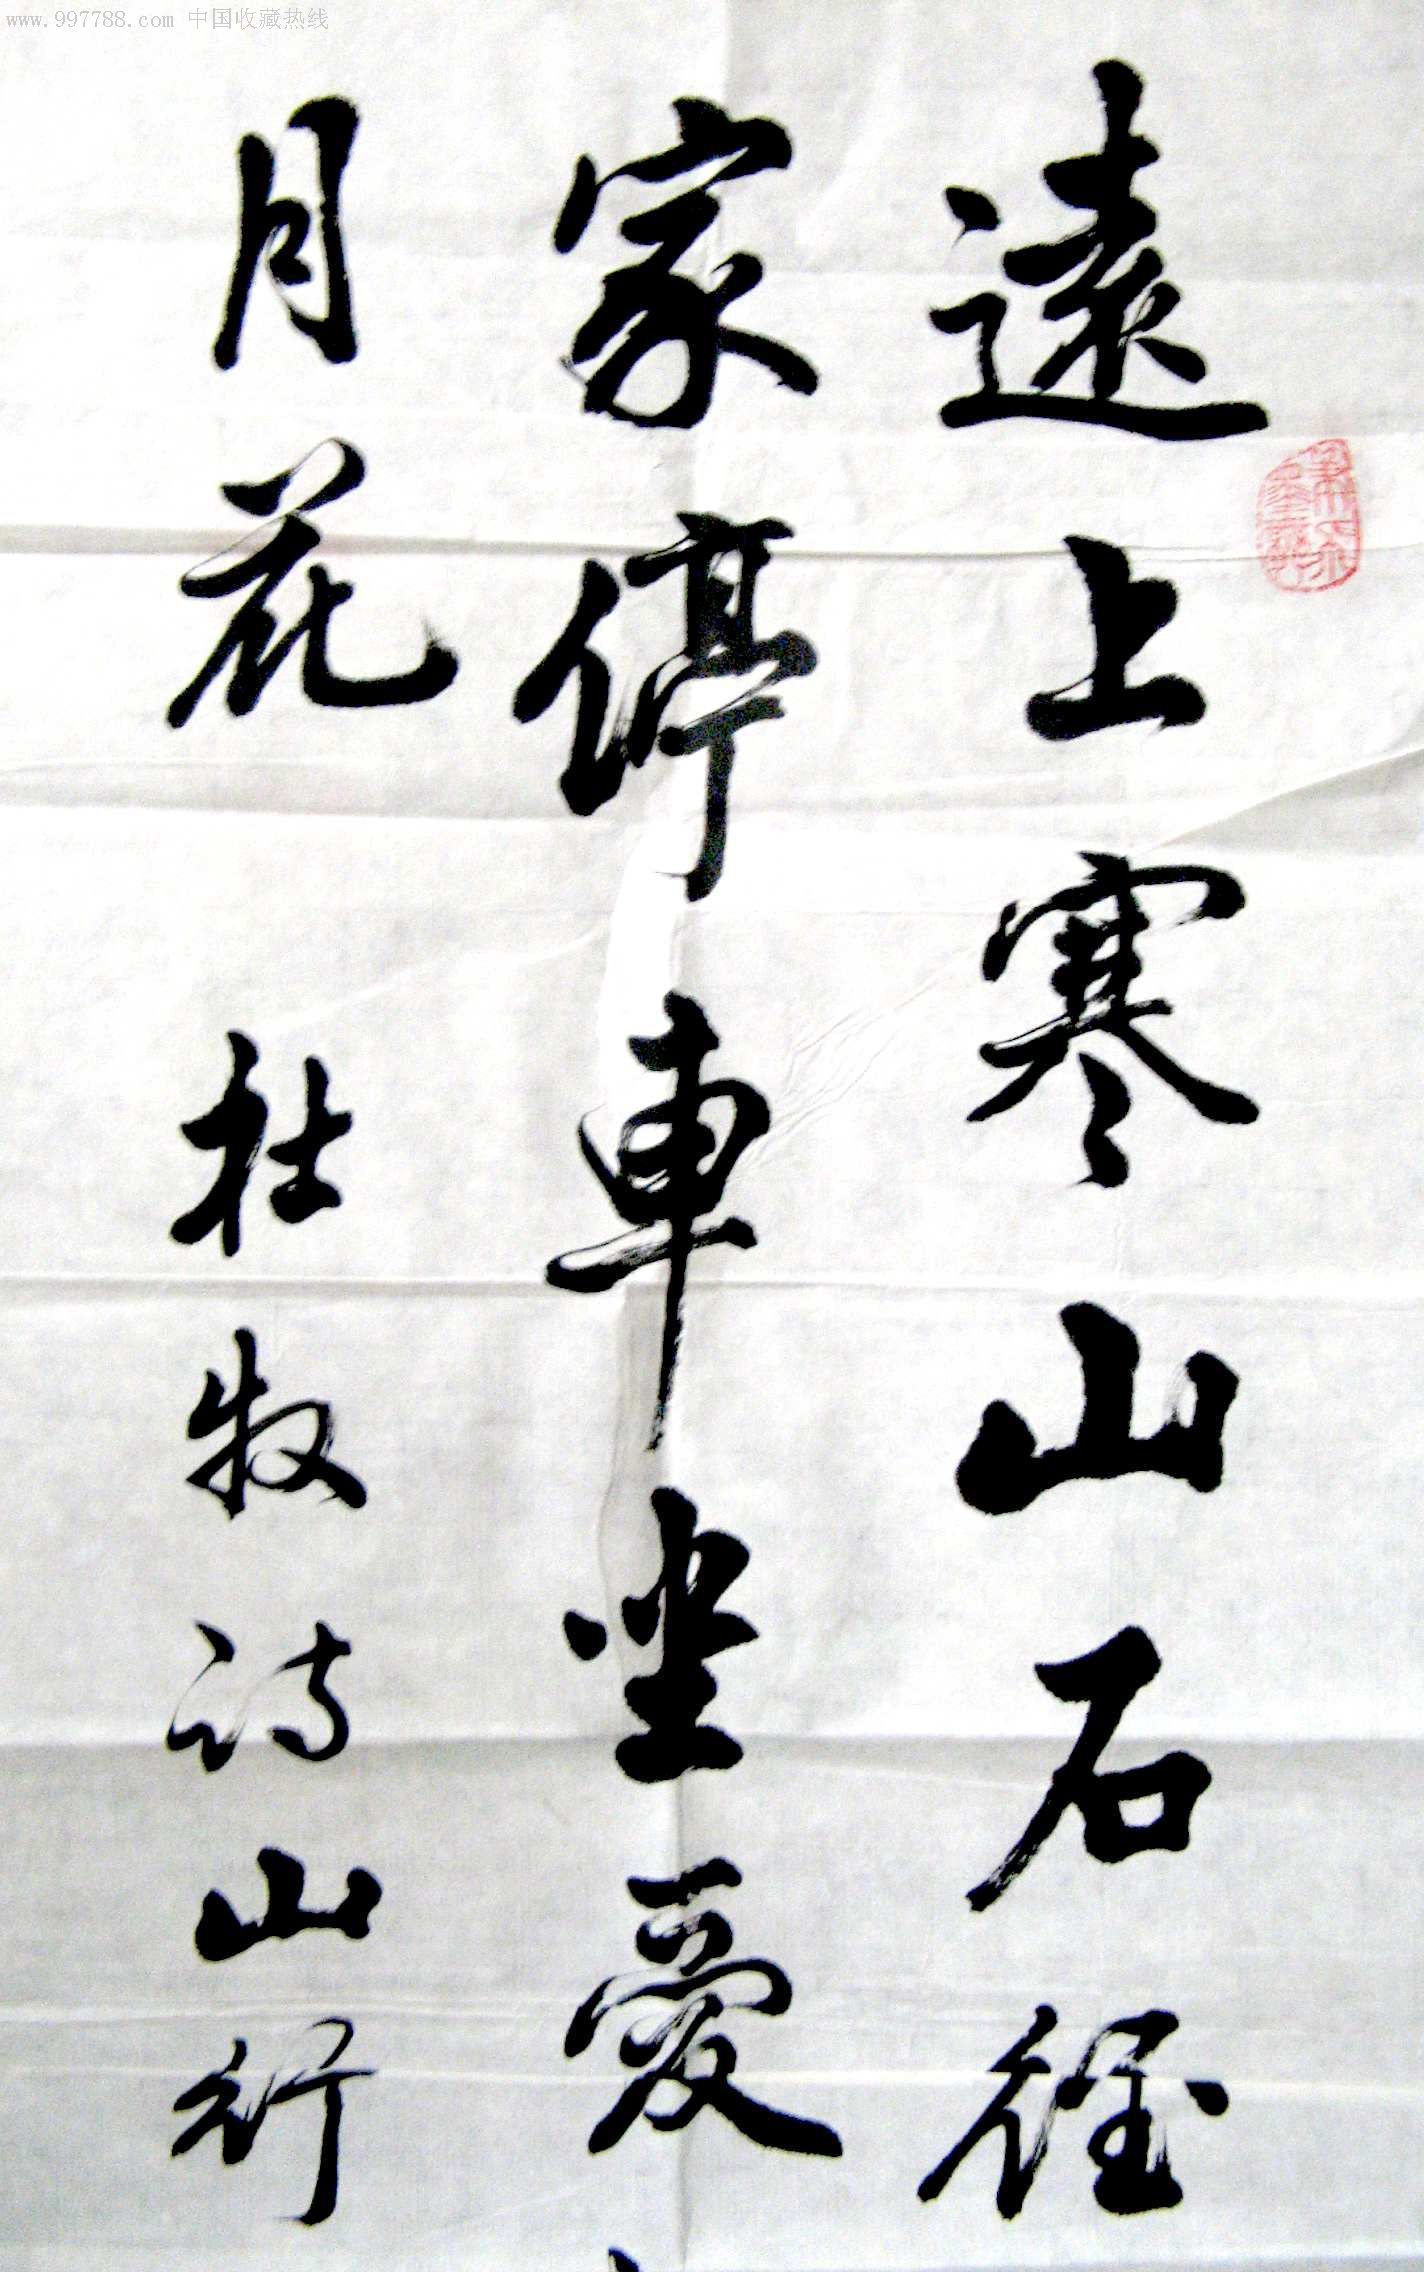 www.997788.com 中国收藏热线
遠上寒山石径
家停車坐愛
月花 杜牧诗山行